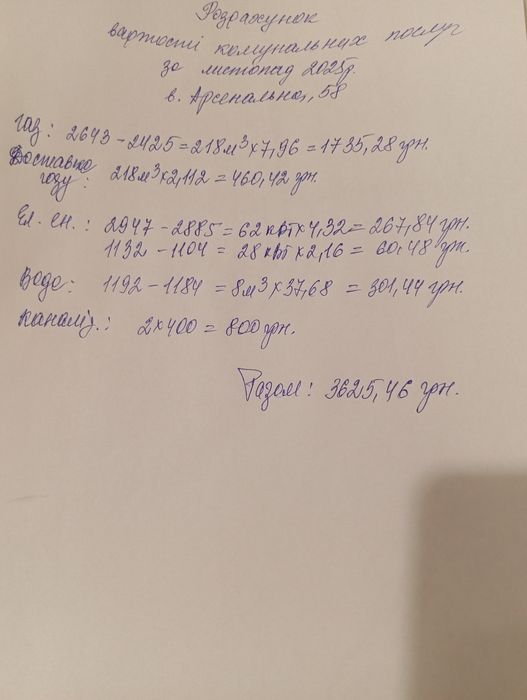 Розрахунок
вартості комунальних послуг
за листопад 2025р.
в. Арсенальна, 58
Газ: 2643 - 2425 = 218м³ x 7,96 = 1735,28 грн.
Доставка
газу: 218м³ x 2,112 = 460,42 грн.
Ел. ен.: 2947 - 2885 = 62 квт x 4,32 = 267,84 грн.
1132 - 1104 = 28 квт x 2,16 = 60,48 грн.
Вода: 1192 - 1184 = 8м³ x 37,68 = 301,44 грн.
Каналіз.: 2 x 400 = 800 грн.
Разом: 3625,46 грн.